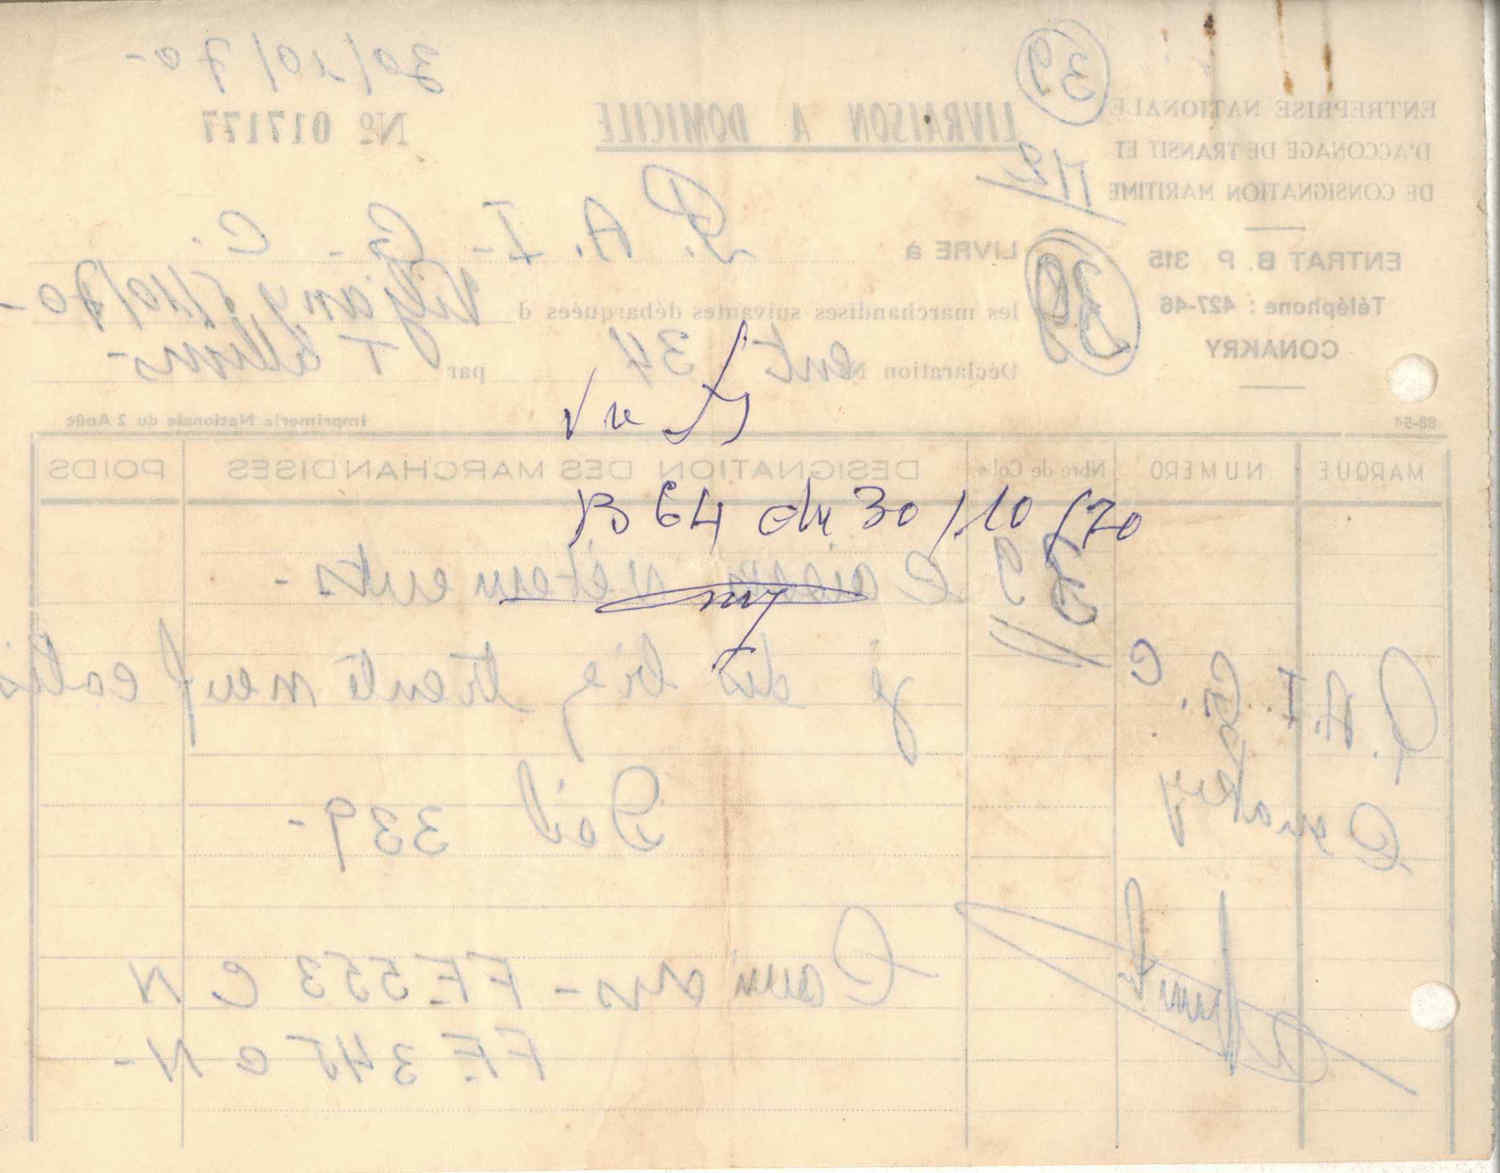 30/10/70-
Nº 017177
LIVRAISON A DOMICILE
39
ENTREPRISE NATIONALE
D'ACCONAGE DE TRANSIT ET
DE CONSIGNATION MARITIME
ENTRAT B. P. 315
Téléphone : 427-46
CONAKRY
LIVRE à P. A. I- G- C.
39
les marchandises suivantes débarquées d 5/10/70-
Déclaration N ent 34 par T
88-54 Imprimerie Nationale du 2 Août
Vu
MARQUE NUMERO Nbre de Colis DESIGNATION DES MARCHANDISES POIDS
B 64 du 30/10/70
39 Caisses vêtements-
je dis big trente neuf colis
P.A.I.G.C.
Conakry
Dél 339-
Camions- FE 553 C N
FE 345 C N-